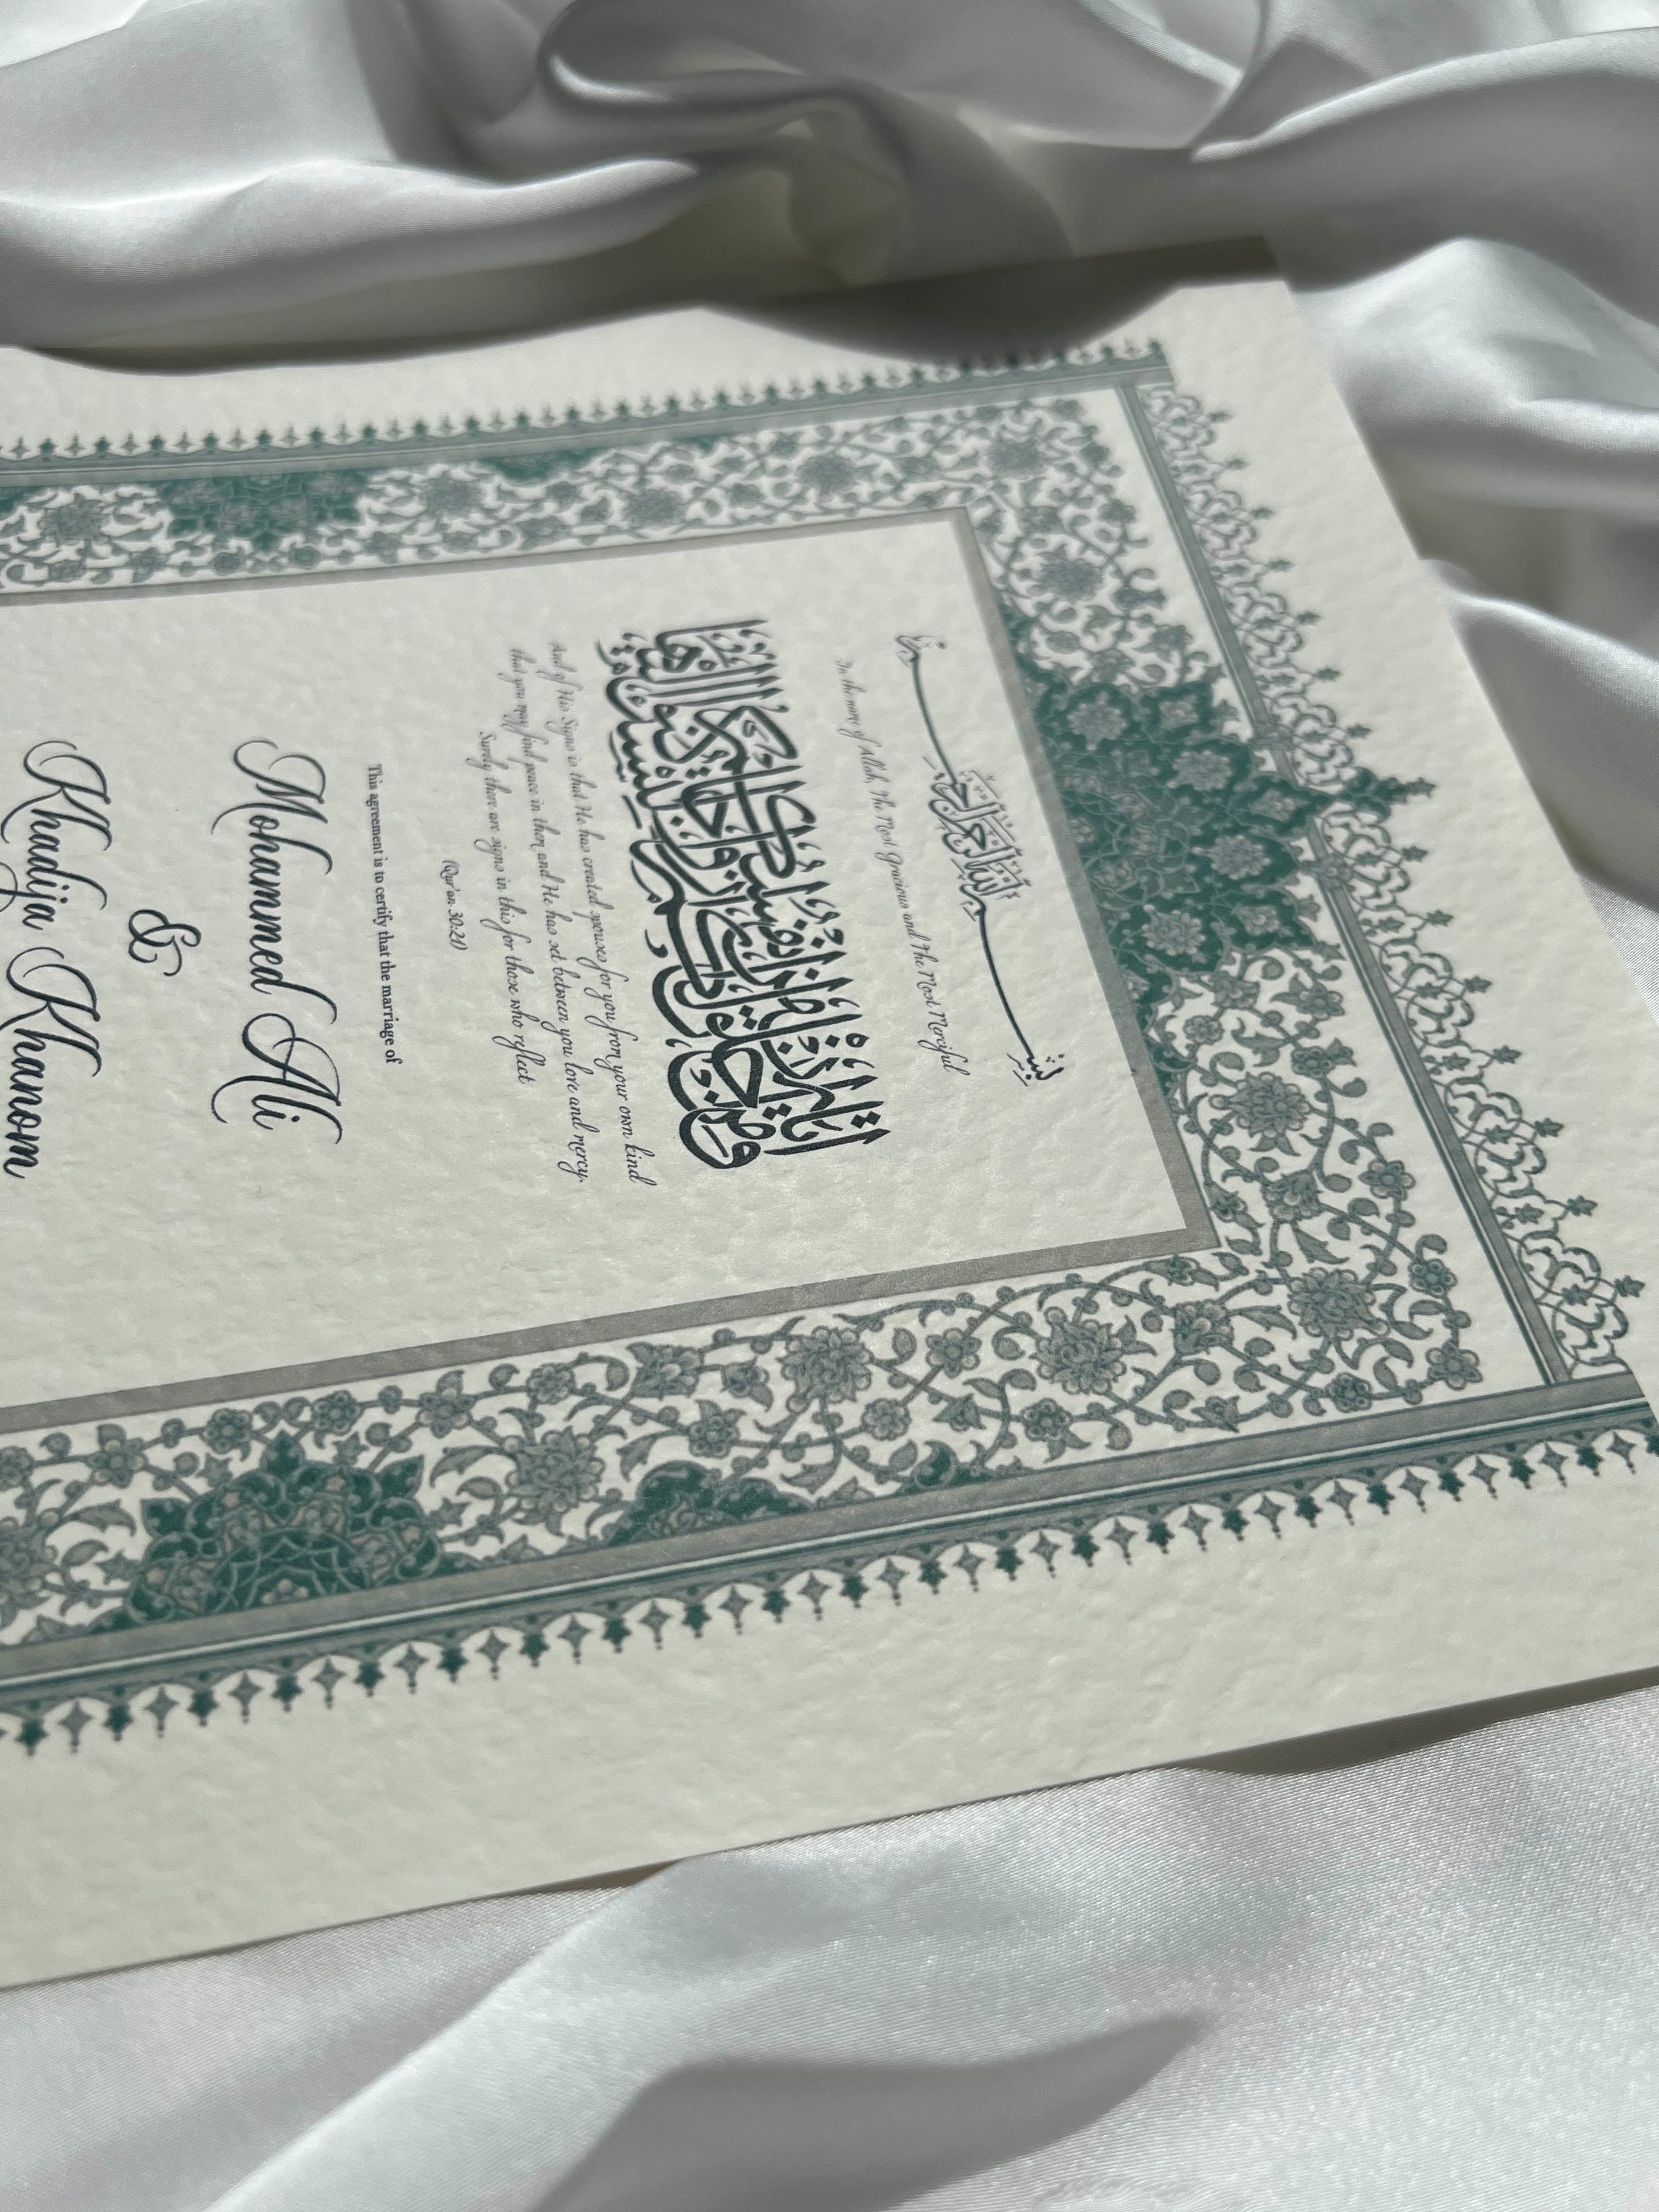 بسم الله الرحمن الرحيم
In the name of Allah, The Most Gracious and The Most Merciful
ومن آياته أن خلق لكم من أنفسكم أزواجا لتسكنوا إليها
And of His Signs is that He has created spouses for you from your own kind
that you may find peace in them and He has set between you love and mercy.
Surely there are signs in this for those who reflect
(Qur'an 30:21)
This agreement is to certify that the marriage of
Mohammed Ali
&
Khadija Khanom